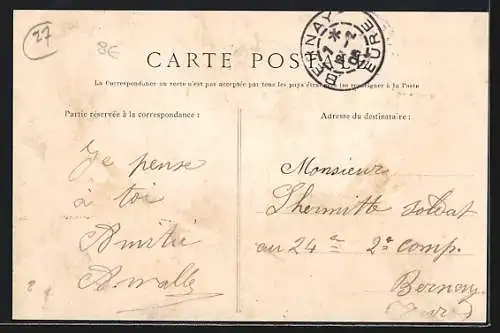 27
8E
CARTE POSTALE
BERNAY
EURE
La Correspondance au verso n'est pas acceptée par tous les pays étrangers (se renseigner à la Poste
Partie réservée à la correspondance :
Adresse du destinataire :
Je pense
à toi
Amitié
Monsieur
Lhermitte soldat
au 24e 2e comp.
Bernay
(Eure)